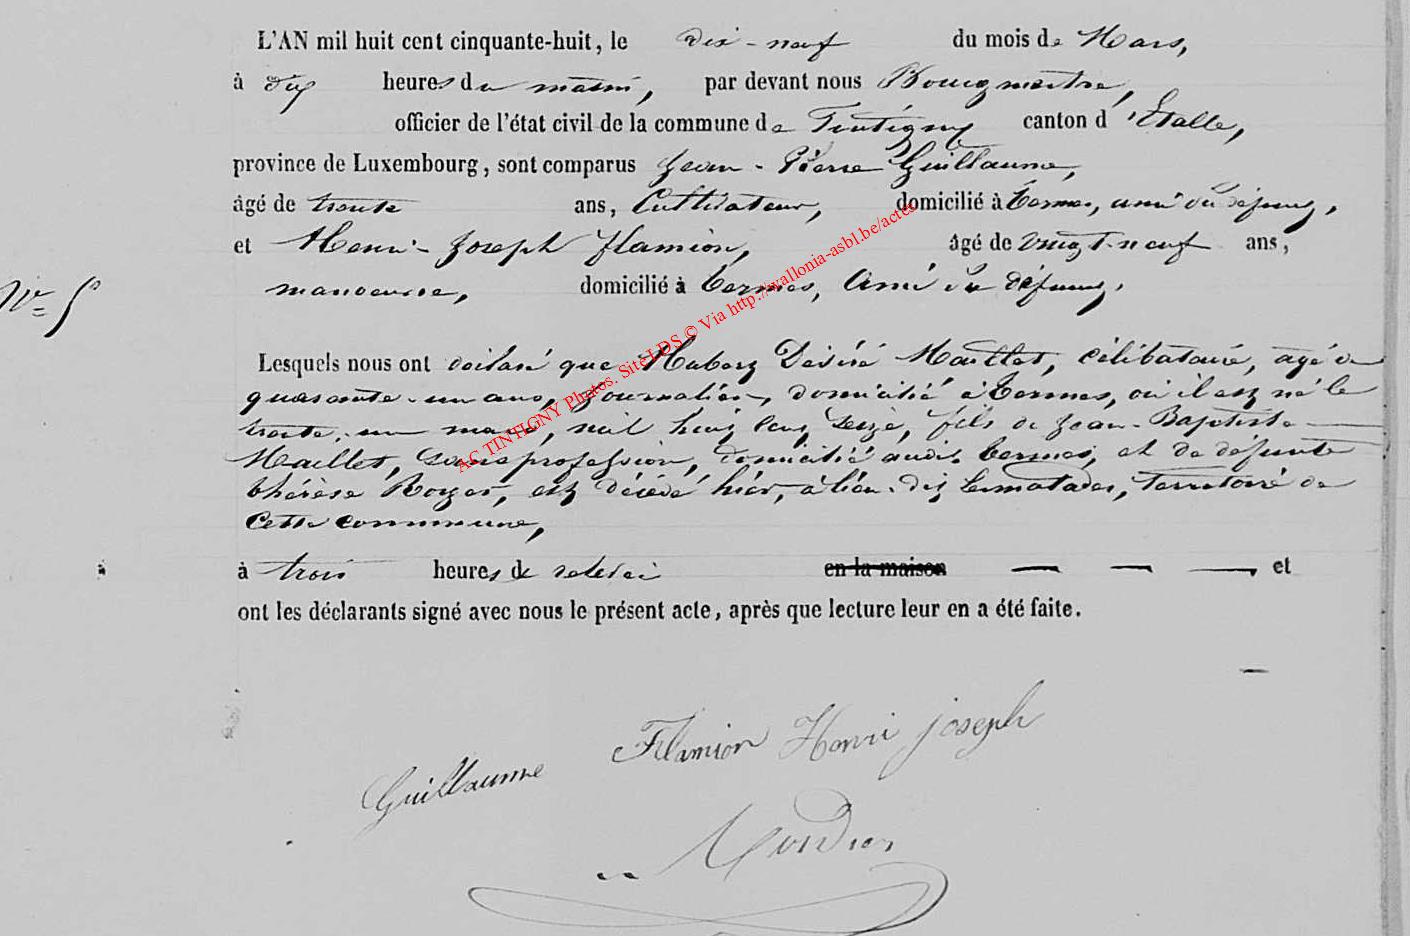 L'AN mil huit cent cinquante-huit, le dix-neuf du mois de Mars,
à dix heures du matin, par devant nous Bourgmestre,
officier de l'état civil de la commune de Tintigny canton d'Etalle,
province de Luxembourg, sont comparus Jean-Pierre Guillaume,
âgé de trente ans, Cultivateur, domicilié à Termes, ami du défunt,
et Henri-Joseph Flamion, âgé de vingt-neuf ans,
N° 5
manoeuvre, domicilié à Termes, Ami du défunt,
Lesquels nous ont déclaré que Hubert Désiré Maillet, célibataire, âgé de
quarante-un ans, journalier, domicilié à Termes, où il est né le
trente-un mars, mil huit cent seize, fils de Jean-Baptiste
Maillet, sans profession, domicilié audit Termes, et de défunte
thérèse Royer, est décédé hier, à lieu-dit territoire de
Cette commune,
à trois heures de relevée en la maison et
ont les déclarants signé avec nous le présent acte, après que lecture leur en a été faite.
Guillaume Flamion Henri joseph
AC TINTIGNY Photos. Site LDS © Via http://wallonia-asbl.be/actes